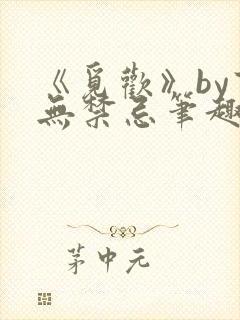 《覓歡》by
無禁忌筆趣
茅中元